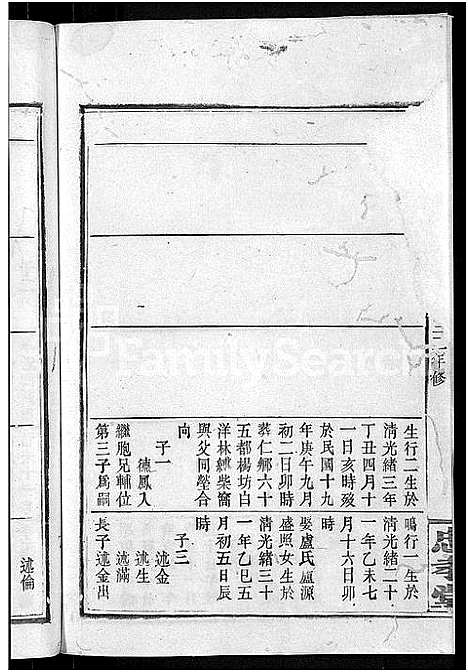 生行二生於
清光緒三年
丁丑四月十
一日亥時殁
於民國十九
年庚午九月
初二日卯時
葬仁鄉六十
五都楊坊白
洋林 柴窩
與父同塋合
向
子一
德鳳入
繼胞兄輔位
第三子爲嗣
鳴行一生於
清光緒二十
一年乙未七
月十六日卯
時
娶盧氏 源
盛照女生於
清光緒三十
一年乙巳五
月初五日辰
時
子三
述金
述生
述滿
長子述金出
述倫
年修
忠孝堂
FamilySearch